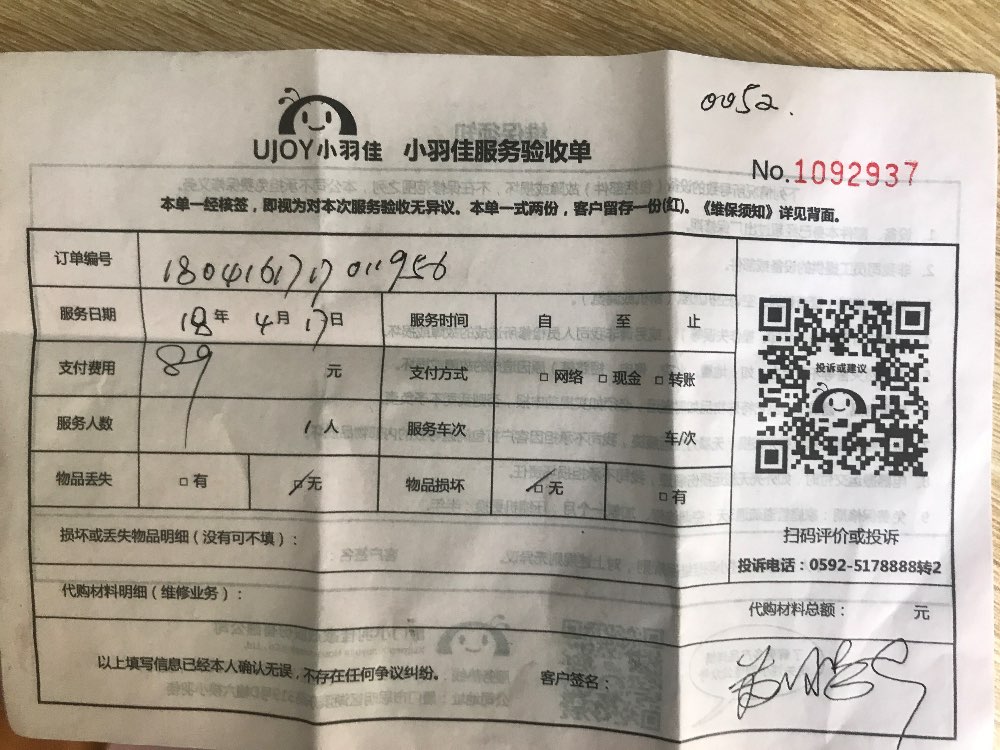 0052.
UJOY小羽佳 小羽佳服务验收单
No.1092937
本单一经核签，即视为对本次服务验收无异议。本单一式两份，客户留存一份(红)。《维保须知》详见背面。
订单编号 1804161717011956
服务日期 18年 4月 17日 服务时间 自 至 止
支付费用 89 元 支付方式 □网络 □现金 □转账
服务人数 1人 服务车次 车/次
物品丢失 □有 □无 物品损坏 □无 □有
投诉或建议
扫码评价或投诉
投诉电话：0592-5178888转2
损坏或丢失物品明细（没有可不填）：
代购材料明细（维修业务）： 代购材料总额： 元
以上填写信息已经本人确认无误，不存在任何争议纠纷。 客户签名：